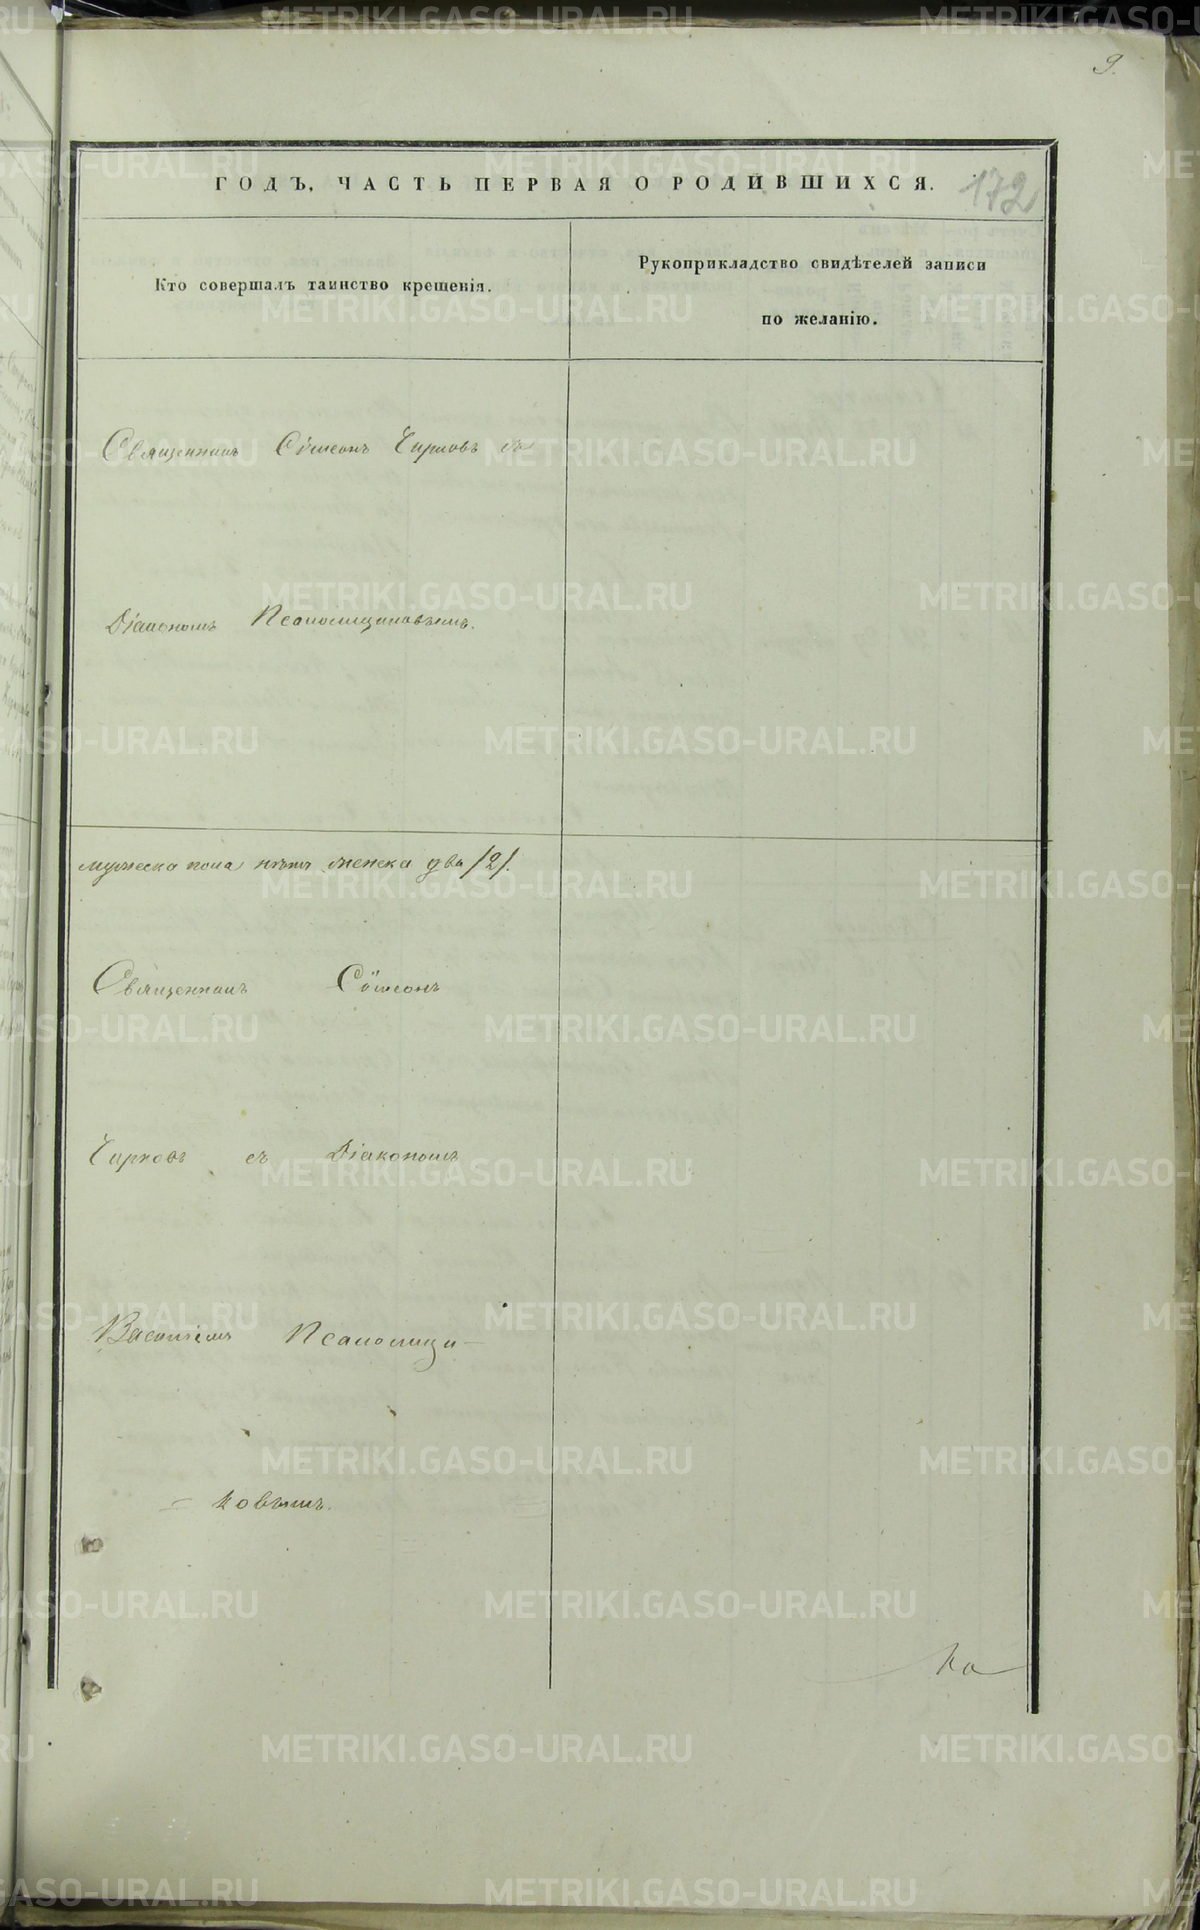 9.
ГОДЪ, ЧАСТЬ ПЕРВАЯ О РОДИВШИХСЯ. 172
Кто совершалъ таинство крещенія.
Рукоприкладство свидѣтелей записи
по желанію.
Священникъ Сѵмеонъ Чирковъ съ
Діакономъ Псаломщиковымъ.
мужеска пола нѣтъ женска два /2/.
Священникъ Сѵмеонъ
Чирковъ съ Діакономъ
Василіемъ Псаломщи-
- ковымъ.
На
METRIKI.GASO-URAL.RU